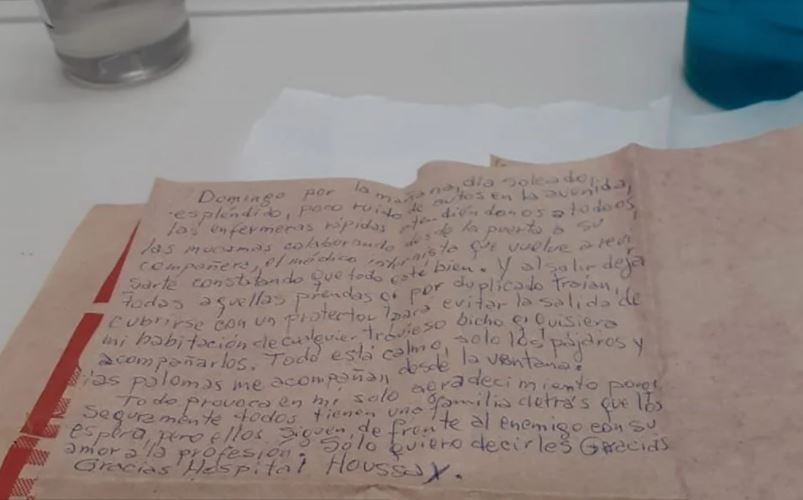 Domingo por la mañana, día soleado,
espléndido, poco ruido de autos en la avenida,
las enfermeras rápidas atendiéndonos a todos,
las mucamas colaborando desde la puerta a su
compañera, el médico internista que vuelve a revi
sarte constatando que todo esté bien. Y al salir deja
todas aquellas prendas q' por duplicado traían,
cubrirse con un protector para evitar la salida de
mi habitación de cualquier travieso bicho q' quisiera
acompañarlos. Todo está calmo, solo los pájaros y
las palomas me acompañan desde la ventana.
Todo provoca en mí solo agradecimiento porq'
seguramente todos tienen una familia detrás que los
espera, pero ellos siguen de frente al enemigo con su
amor a la profesión. Sólo quiero decirles Gracias
Gracias Hospital Houssay.